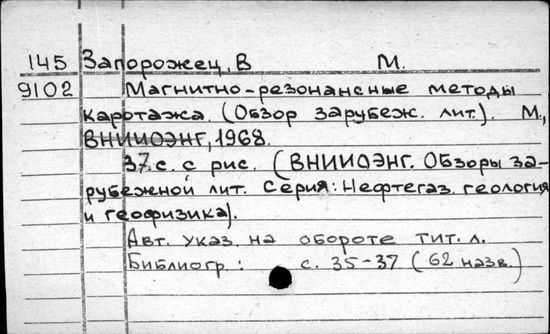 145 Запорожец, В М.
9102 Магнитно-резонансные методы
каротажа. (Обзор зарубеж. лит.). М.,
ВНИИОЭНГ, 1968.
37 с. с рис. (ВНИИОЭНГ. Обзоры за-
рубежной лит. Серия: Нефтегаз. геология
и геофизика).
Авт. указ. на обороте тит. л.
Библиогр.: с. 35-37 (62 назв.)